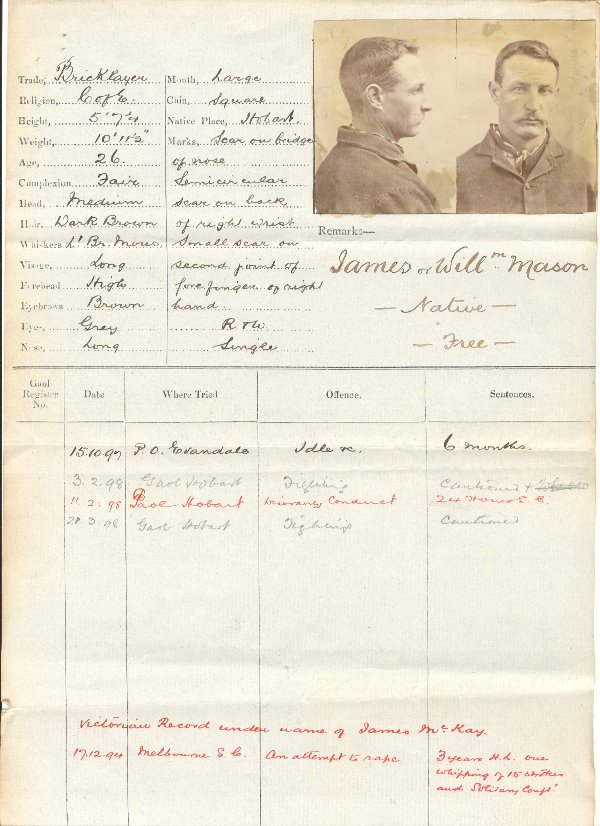 Trade, Bricklayer
Religion, C of E.
Height, 5' 7¼
Weight, 10' 11½"
Age, 26
Complexion Fair
Head, Medium
Hair, Dark Brown
Whiskers Lt Br. Mous
Visage, Long
Forehead High
Eyebrows Brown
Eyes, Grey
Nose, Long
Mouth, Large
Chin, Square
Native Place, Hobart
Marks, Scar on bridge
of nose
Semicircular
scar on back
of right wrist
Small scar on
second point of
forefinger of right
hand
R & W
Single
Remarks—
James or Willm Mason
— Native —
— Free —
Gaol Register No. Date Where Tried Offence. Sentences.
15.10.97 P O. Evandale Idle &c. 6 months.
3.2.98 Gaol Hobart Fighting Cautioned &
11.2.98 Gaol Hobart Conduct 24 Hours S. C.
3.98 Gaol Hobart Fighting Cautioned
Victorian Record under name of James McKay.
17.12.94 Melbourne S. C. An attempt to rape 3 years H.L. one
whipping of 15 strokes
and Solitary Conft